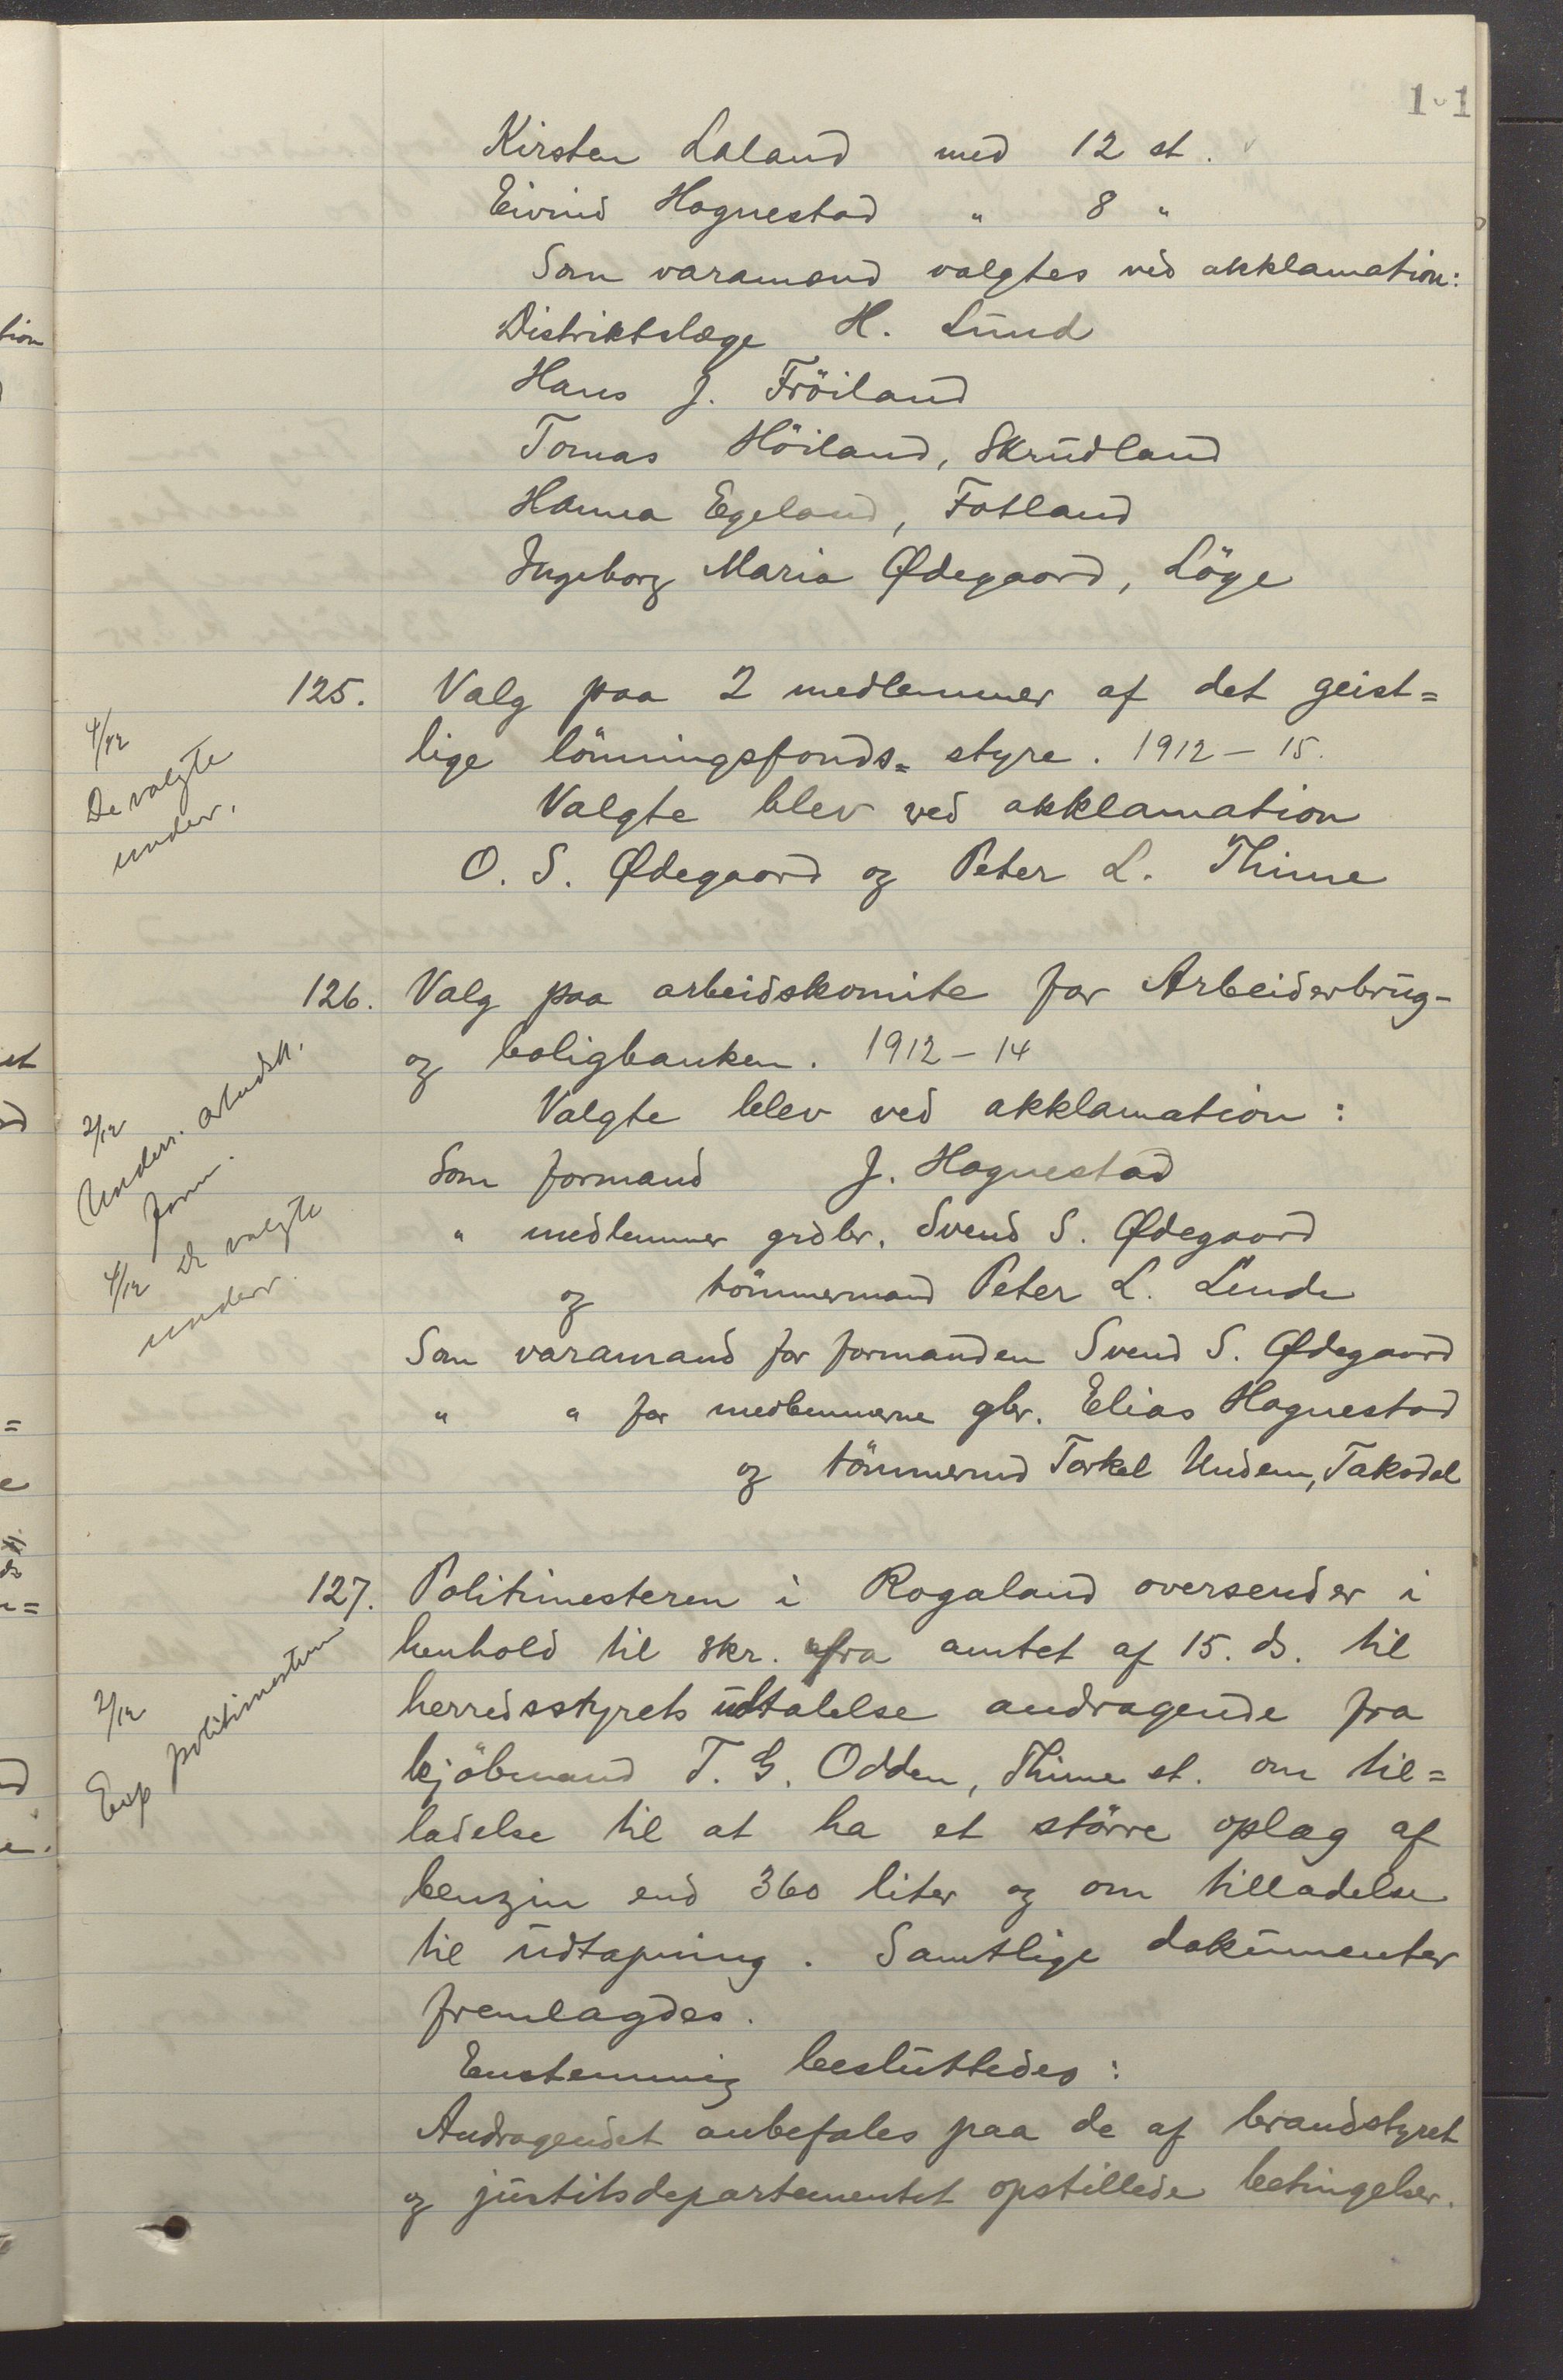 Kirsten Laland med 12 st.
Eivind Hognestad " 8 "
Som varamænd valgtes ved akklamation:
Distriktslæge H. Lund
Hans J. Fröiland
Tomas Höiland, Skrudland
Hanna Egeland, Fotland
Ingeborg Maria Ødegaard, Löge
125. Valg paa 2 medlemmer af det geist=
lige lönningsfonds= styre. 1912 – 15.
4/12
De valgte
under.
Valgte blev ved akklamation
O. S. Ødegaard og Peter L. Thime
126. Valg paa arbeidskomite for Arbeiderbrug-
og boligbanken. 1912 – 14
2/12
Underr. arbeidsk.
form.
4/12 De valgte
underr.
Valgte blev ved akklamation:
Som formand J. Hognestad
" medlemmer grdbr. Svend S. Ødegaard
og tömmermand Peter L. Lende
Som varamand for formanden Svend S. Ødegaard
" " for medlemmerne gbr. Elias Hognestad
og tömmermd Torkel Undem, Taksdal
127. Politimesteren i Rogaland oversender i
henhold til skr. fra amtet af 15. ds. til
herredsstyrets udtalelse andragende fra
kjöbmand T. G. Odden, Thime st. om til=
ladelse til at ha et större oplag af
benzin end 360 liter og om tilladelse
til udtapning. Samtlige dokumenter
fremlagdes.
2/12
Exp politimesteren
Enstemmig besluttedes:
Andragendet anbefales paa de af brandstyret
og justitsdepartementet opstillede betingelser.